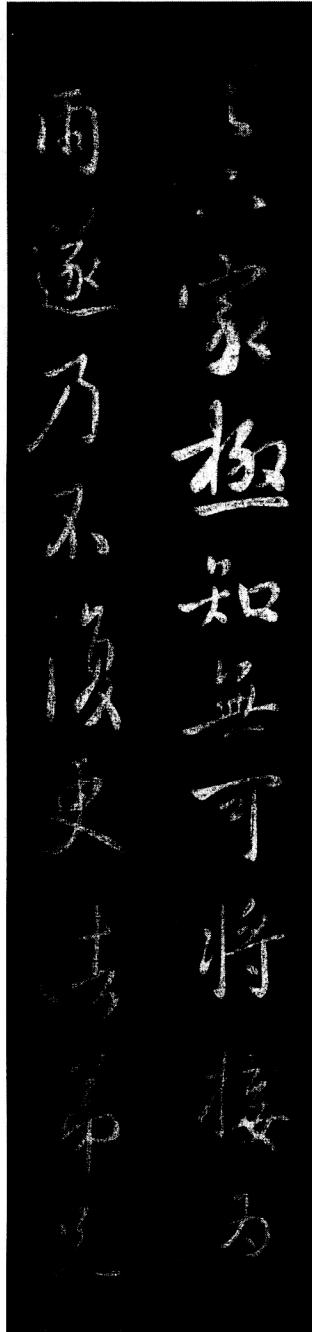 家極知無可將接為
雨遂乃不復更去弟